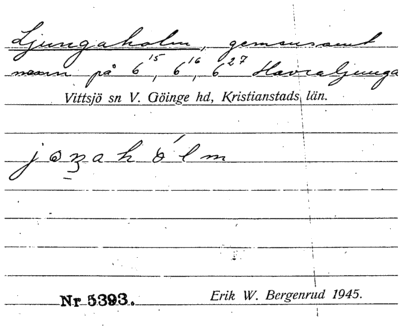 Ljungaholm, gemensamt
namn på 6¹⁵, 6¹⁶, 6²⁷ Havraljunga
Vittsjö sn V. Göinge hd, Kristianstads län.
Nr 5393.
Erik W. Bergenrud 1945.